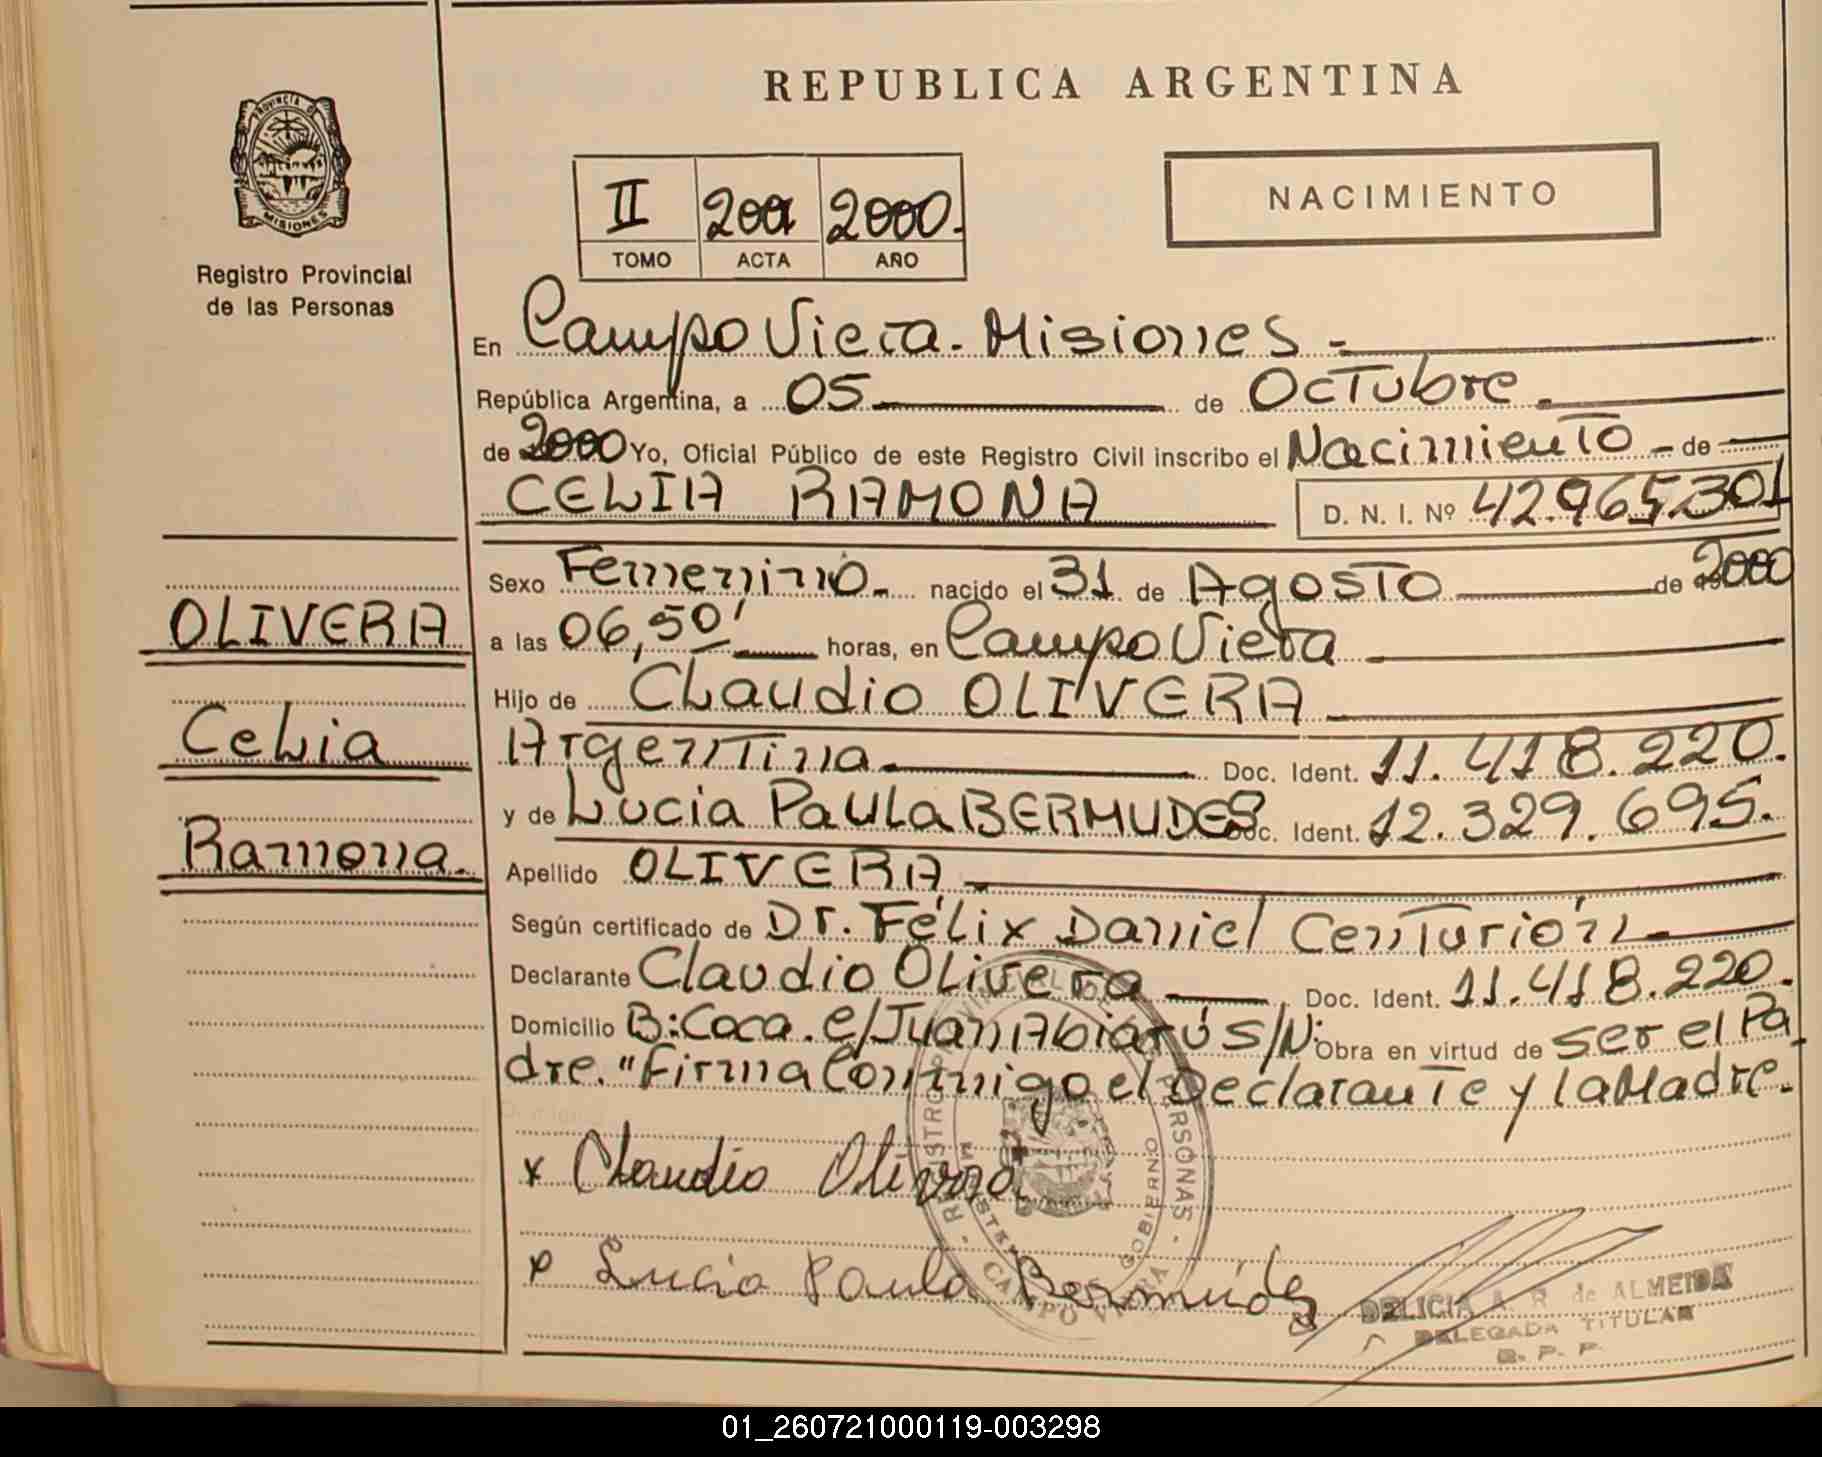 REPUBLICA ARGENTINA
PROVINCIA DE
MISIONES
Registro Provincial
de las Personas
II 2000.
TOMO ACTA AÑO
NACIMIENTO
En Campo Viera - Misiones -
República Argentina, a 05 de Octubre.
de 2000 Yo, Oficial Público de este Registro Civil inscribo el Nacimiento - de
CELIA RAMONA D. N. I. Nº 42.965.301
Sexo Femenino. nacido el 31 de Agosto de 2000
OLIVERA
a las 06,50' horas, en Campo Viera
Hijo de Claudio OLIVERA
Celia
Argentina Doc. Ident. 11.418.220.
y de Lucia Paula BERMUDES Doc. Ident. 12.329.695.
Ramona.
Apellido OLIVERA
Según certificado de Dr. Félix Daniel Centurión
Declarante Claudio Olivera Doc. Ident. 11.418.220.
Domicilio B: Coca. e/Juan Abiarú S/N: Obra en virtud de ser el Pa
dre. "Firma Conmigo el Declarante y la Madre.
x Claudio Olivera
x Lucia Paula Bermúdez
REGISTRO PROVINCIAL DE LAS PERSONAS
GOBIERNO
CAMPO VIERA
DELICIA A. R. de ALMEIDA
DELEGADA TITULAR
R. P. P.
01_260721000119-003298